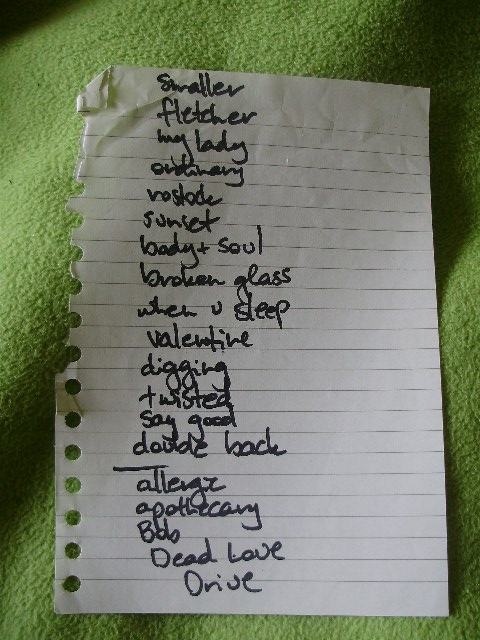 smaller
fletcher
my lady
ordinary
rostock
sunset
body + soul
broken glass
when u sleep
valentine
digging
twisted
say good
double back
allergic
apothecary
Bob
Dead Love
Drive